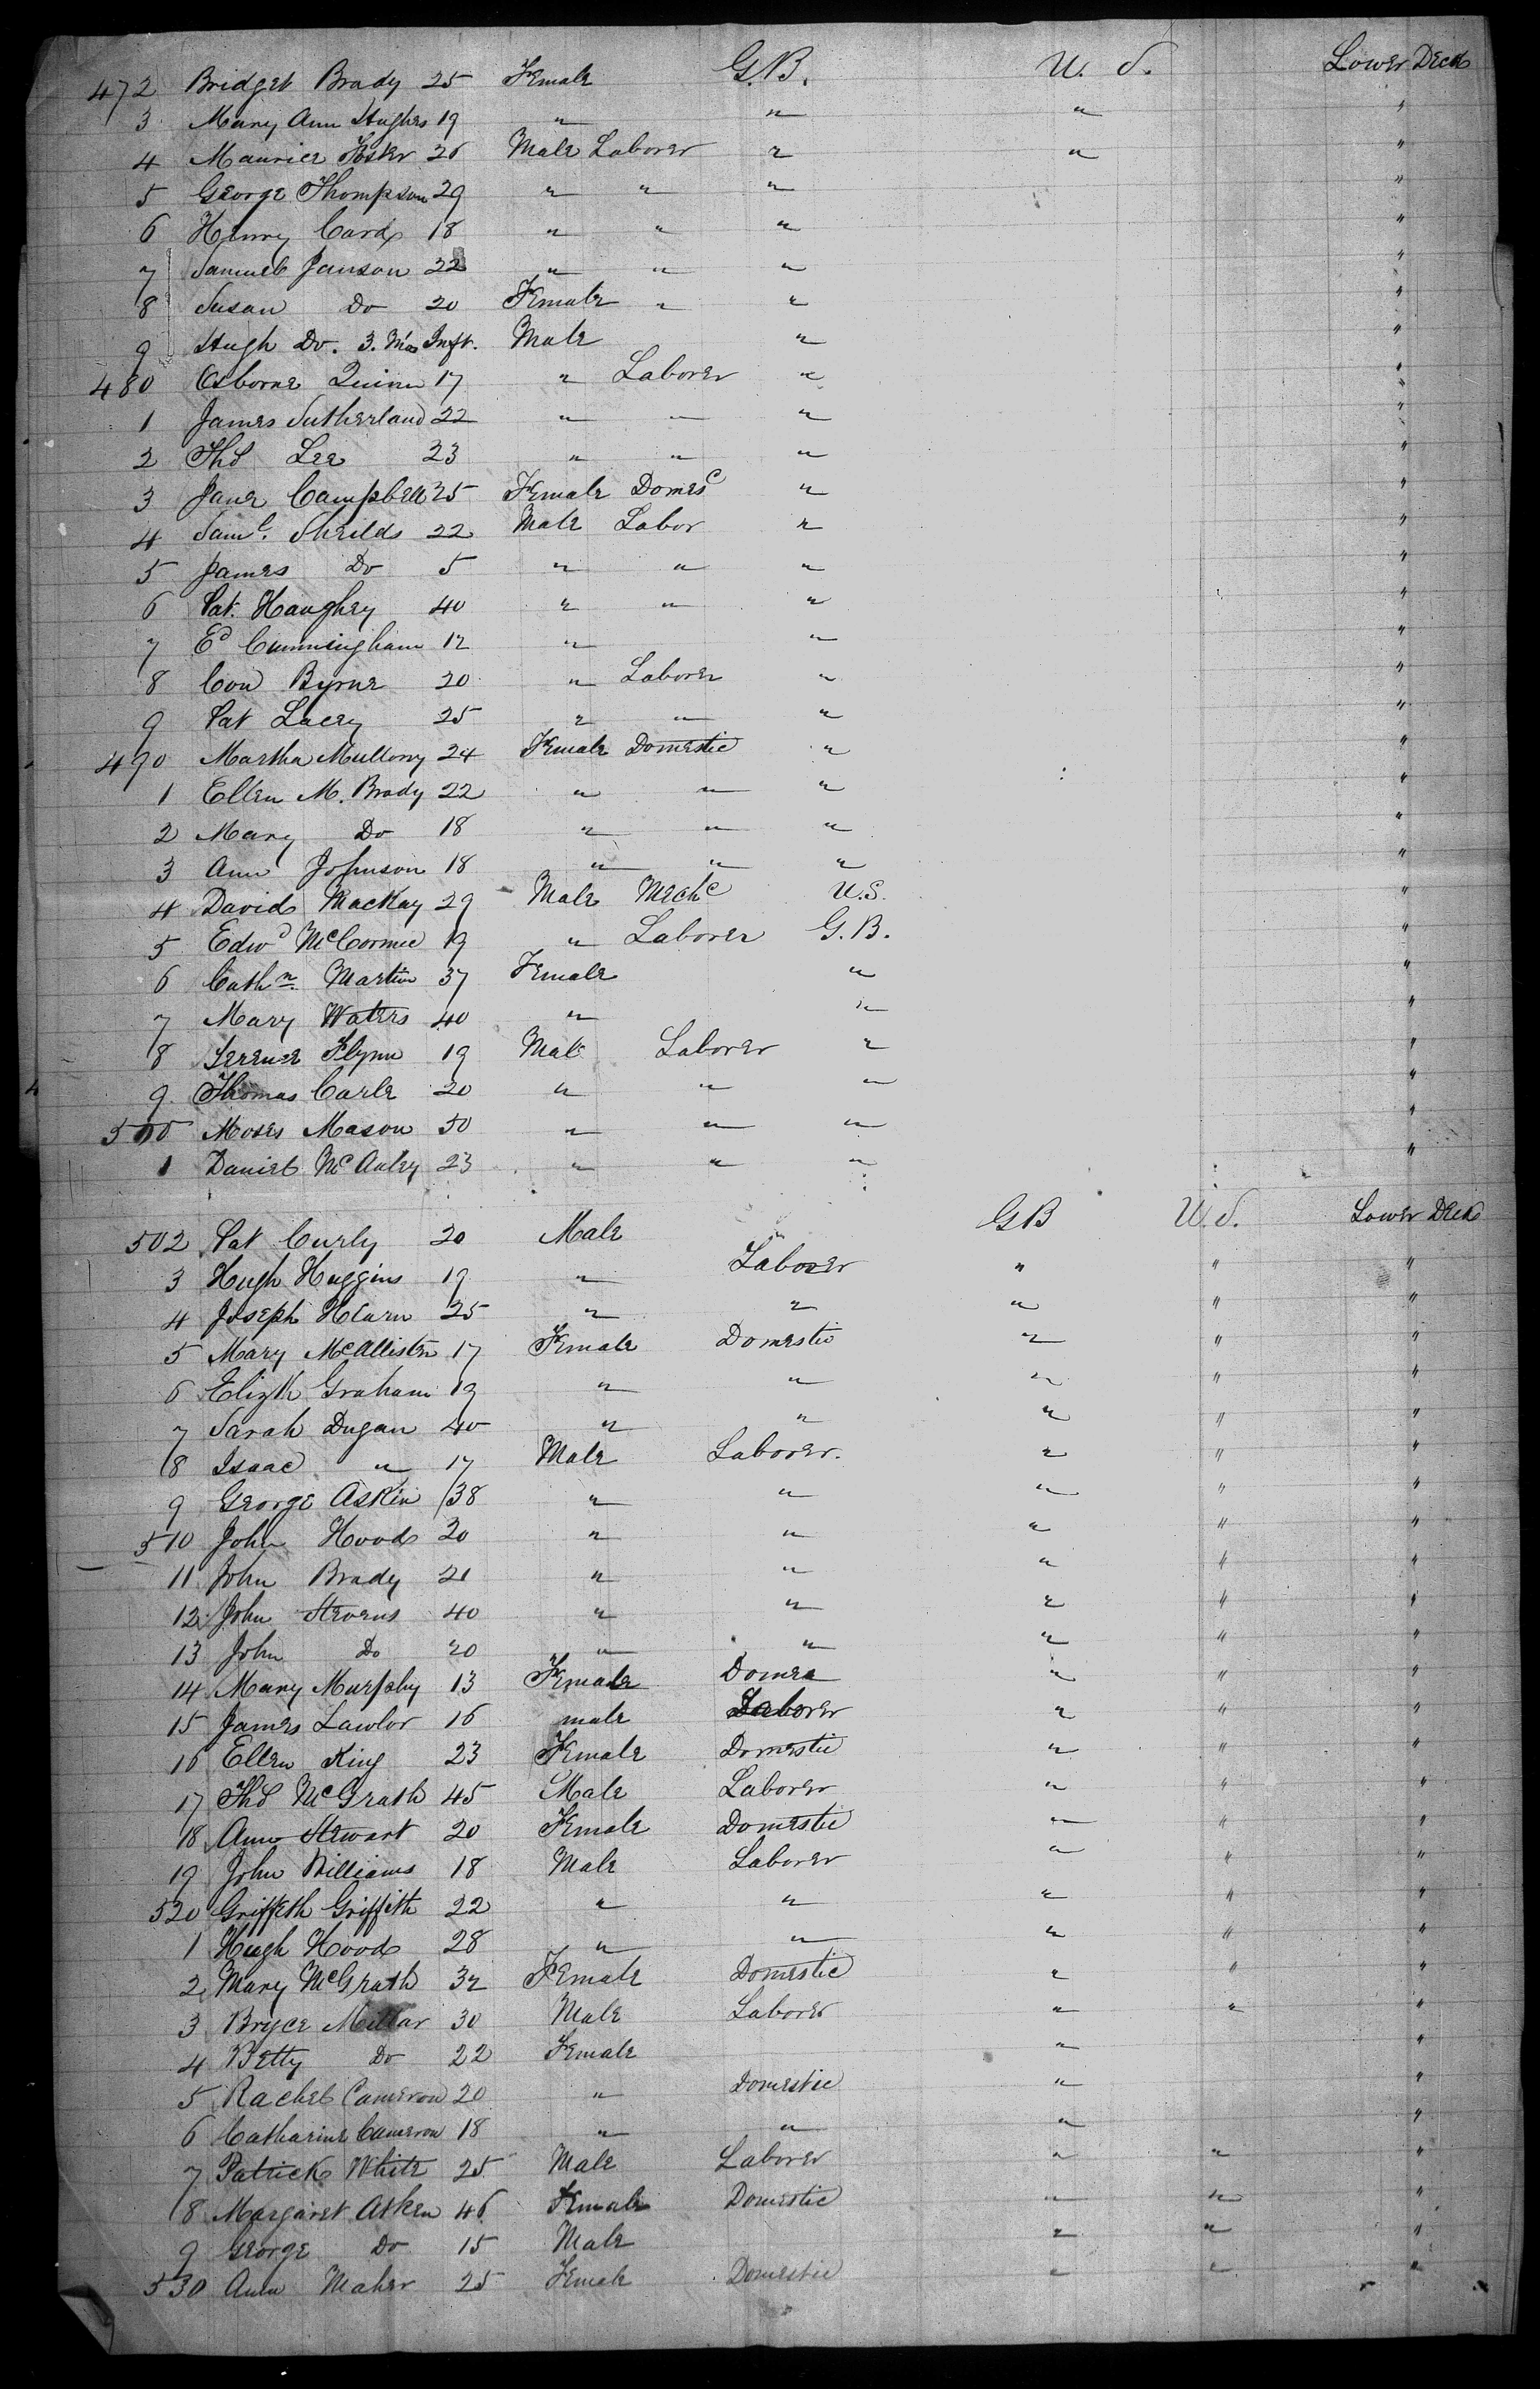 472 Bridget Brady 25 Female G.B. U. S. Lower Deck
3 Mary Ann Hughes 19 " " " "
4 Maurice 26 Male Laborer " " "
5 George Thompson 29 " " " "
6 Henry Card 18 " " " "
7 Samuel Janson 22 " " " "
8 Susan Do 20 Female " " "
9 Hugh Do. 3. Mos Inft. Male " "
480 Osborne Quinn 17 " Laborer " "
1 James Sutherland 22 " " " "
2 Thos Lee 23 " " " "
3 Jane Campbell 25 Female Domesc " "
4 Saml. Sheilds 22 Male Labor " "
5 James Do 5 " " " "
6 Pat. Haughey 40 " " " "
7 Ed Cunningham 12 " " "
8 Con Byrne 20 " Laborer " "
9 Pat Lacey 25 " " " "
490 Martha Mullony 24 Female Domestic " "
1 Ellen M. Brady 22 " " " "
2 Mary Do 18 " " " "
3 Ann Johnson 18 " " " "
4 David MacKay 29 Male Mechc U.S. "
5 Edwd McCormic 19 " Laborer G.B. "
6 Cathn. Martin 37 Female " "
7 Mary Waters 40 " " "
8 Terence Flynn 19 Male Laborer " "
9 Thomas Carle 20 " " " "
500 Moses Mason 50 " " " "
1 Daniel McAuley 23 " " " "
502 Pat Curly 20 Male " GB U.S. Lower Deck
3 Hugh Huggins 19 " Laborer " " "
4 Joseph Hearn 25 " " " " "
5 Mary McAllister 17 Female Domestic " " "
6 Elizth Graham 19 " " " " "
7 Sarah Dugan 40 " " " " "
8 Isaac " 17 Male Laborer. " " "
9 George Askin 38 " " " " "
510 John Hood 20 " " " " "
11 John Brady 21 " " " " "
12 John Stevens 40 " " " " "
13 John Do 20 " " " " "
14 Mary Murphy 13 Female Domes " " "
15 James Lawlor 16 male Laborer " " "
16 Ellen King 23 Female Domestic " " "
17 Thos McGrath 45 Male Laborer " " "
18 Ann Stewart 20 Female Domestic " " "
19 John Williams 18 Male Laborer " " "
520 Griffeth Griffith 22 " " " " "
1 Hugh Hood 28 " " " " "
2 Mary McGrath 32 Female Domestic " " "
3 Bryce Millar 30 Male Laborer " " "
4 Betty Do 22 Female " "
5 Rachel Cameron 20 " Domestic " "
6 Catharine Cameron 18 " " " "
7 Patrick White 25 Male Laborer " " "
8 Margaret Asken 46 Female Domestic " " "
9 George Do 15 Male " " "
530 Ann Maher 25 Female Domestic " " "